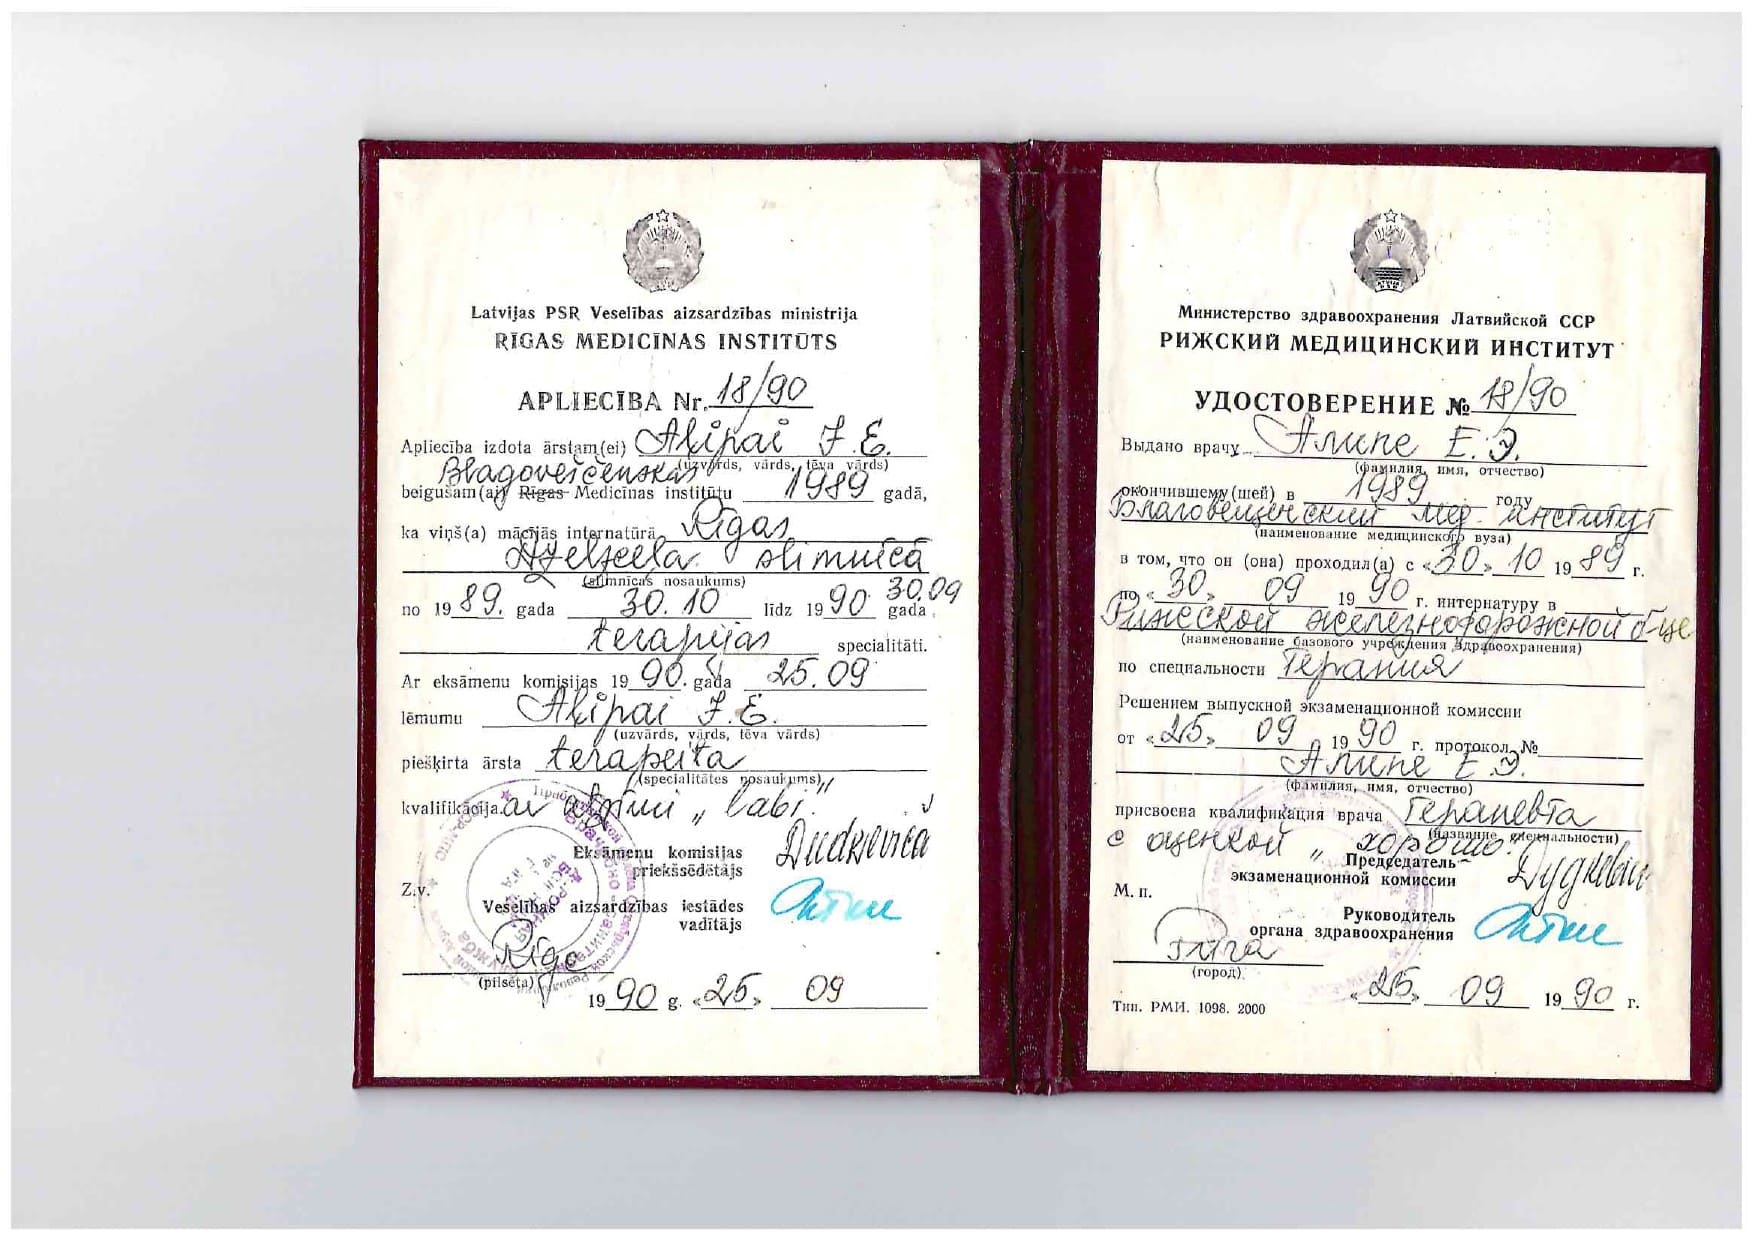 Latvijas PSR Veselības aizsardzības ministrija
RĪGAS MEDICĪNAS INSTITŪTS
APLIECĪBA Nr. 18/90
Apliecība izdota ārstam(ei) Aļipai J. E.
(uzvārds, vārds, tēva vārds)
Blagoveščenskas
beigušam(ai) Rīgas Medicīnas institūtu 1989 gadā,
ka viņš(a) mācījās internatūrā Rīgas
Dzelzceļa slimnīcā
(slimnīcas nosaukums)
no 1989. gada 30.10 līdz 1990 gada 30.09
terapijas specialitāti.
Ar eksāmenu komisijas 1990. gada 25.09
lēmumu Aļipai J. E.
(uzvārds, vārds, tēva vārds)
piešķirta ārsta terapeita
(specialitātes nosaukums)
kvalifikācija. ar atzīmi „labi"
Eksāmenu komisijas
priekšsēdētājs
Z.v.
Veselības aizsardzības iestādes
vadītājs
Rīga
(pilsēta)
1990 g. «25» 09
Министерство здравоохранения Латвийской ССР
РИЖСКИЙ МЕДИЦИНСКИЙ ИНСТИТУТ
УДОСТОВЕРЕНИЕ № 18/90
Выдано врачу Алипе Е. Э.
(фамилия, имя, отчество)
окончившему(шей) в 1989 году
Благовещенский мед. институт
(наименование медицинского вуза)
в том, что он (она) проходил(а) с «30» 10 1989 г.
по «30» 09 1990 г. интернатуру в
Рижской железнодорожной б-це
(наименование базового учреждения здравоохранения)
по специальности Терапия
Решением выпускной экзаменационной комиссии
от «25» 09 1990 г. протокол №
Алипе Е. Э.
(фамилия, имя, отчество)
присвоена квалификация врача Терапевта
(название специальности)
с оценкой „хорошо"
Председатель
экзаменационной комиссии
М. п.
Руководитель
органа здравоохранения
Рига
(город)
«25» 09 1990 г.
Тип. РМИ. 1098. 2000